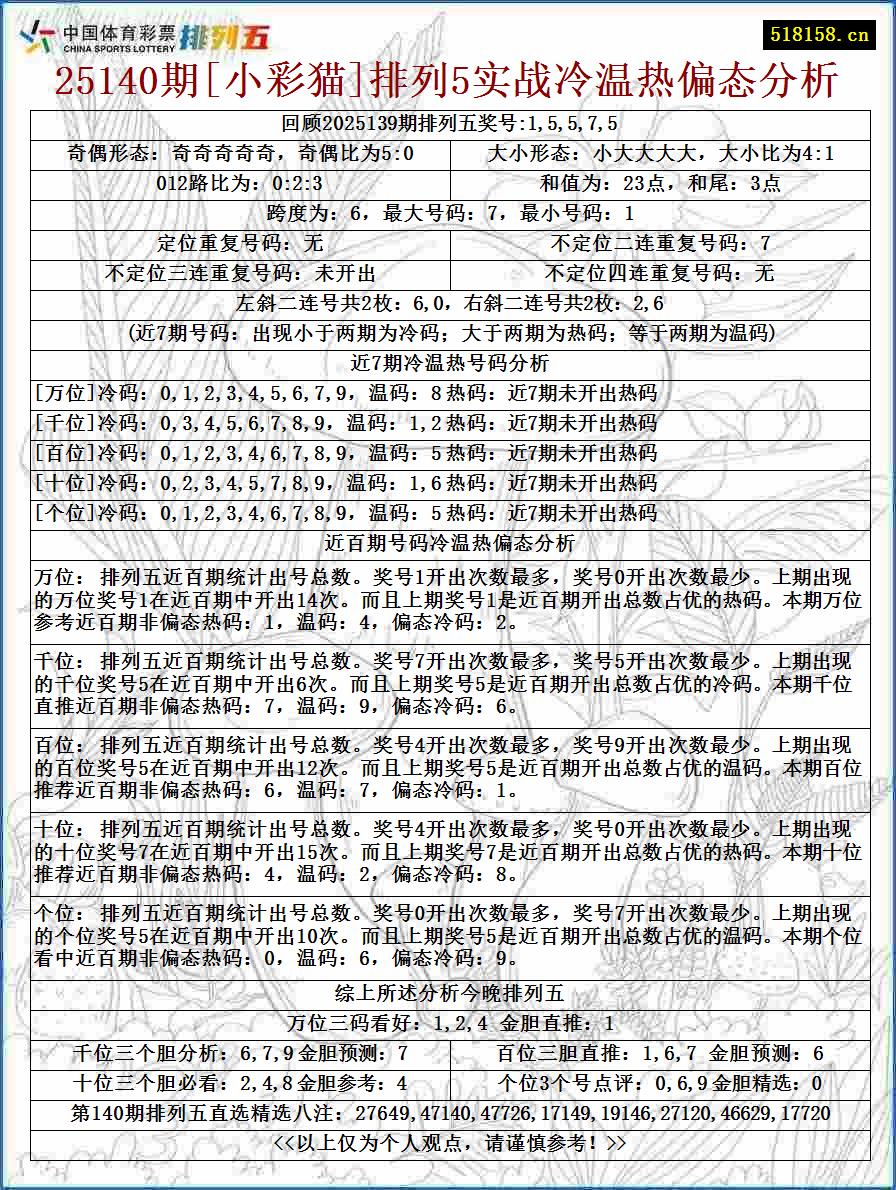 中国体育彩票
CHINA SPORTS LOTTERY
排列五
518158.cn
25140期[小彩猫]排列5实战冷温热偏态分析
回顾2025139期排列五奖号:1,5,5,7,5
奇偶形态：奇奇奇奇奇，奇偶比为5:0
大小形态：小大大大大，大小比为4:1
012路比为：0:2:3
和值为：23点，和尾：3点
跨度为：6，最大号码：7，最小号码：1
定位重复号码：无
不定位二连重复号码：7
不定位三连重复号码：未开出
不定位四连重复号码：无
左斜二连号共2枚：6,0，右斜二连号共2枚：2,6
(近7期号码：出现小于两期为冷码；大于两期为热码；等于两期为温码)
近7期冷温热号码分析
[万位]冷码：0,1,2,3,4,5,6,7,9，温码：8 热码：近7期未开出热码
[千位]冷码：0,3,4,5,6,7,8,9，温码：1,2 热码：近7期未开出热码
[百位]冷码：0,1,2,3,4,6,7,8,9，温码：5 热码：近7期未开出热码
[十位]冷码：0,2,3,4,5,7,8,9，温码：1,6 热码：近7期未开出热码
[个位]冷码：0,1,2,3,4,6,7,8,9，温码：5 热码：近7期未开出热码
近百期号码冷温热偏态分析
万位： 排列五近百期统计出号总数。奖号1开出次数最多，奖号0开出次数最少。上期出现
的万位奖号1在近百期中开出14次。而且上期奖号1是近百期开出总数占优的热码。本期万位
参考近百期非偏态热码：1，温码：4，偏态冷码：2。
千位： 排列五近百期统计出号总数。奖号7开出次数最多，奖号5开出次数最少。上期出现
的千位奖号5在近百期中开出6次。而且上期奖号5是近百期开出总数占优的冷码。本期千位
直推近百期非偏态热码：7，温码：9，偏态冷码：6。
百位： 排列五近百期统计出号总数。奖号4开出次数最多，奖号9开出次数最少。上期出现
的百位奖号5在近百期中开出12次。而且上期奖号5是近百期开出总数占优的温码。本期百位
推荐近百期非偏态热码：6，温码：7，偏态冷码：1。
十位： 排列五近百期统计出号总数。奖号4开出次数最多，奖号0开出次数最少。上期出现
的十位奖号7在近百期中开出15次。而且上期奖号7是近百期开出总数占优的热码。本期十位
推荐近百期非偏态热码：4，温码：2，偏态冷码：8。
个位： 排列五近百期统计出号总数。奖号0开出次数最多，奖号7开出次数最少。上期出现
的个位奖号5在近百期中开出10次。而且上期奖号5是近百期开出总数占优的温码。本期个位
看中近百期非偏态热码：0，温码：6，偏态冷码：9。
综上所述分析今晚排列五
万位三码看好：1,2,4 金胆直推：1
千位三个胆分析：6,7,9 金胆预测：7
百位三胆直推：1,6,7 金胆预测：6
十位三个胆必看：2,4,8 金胆参考：4
个位3个号点评：0,6,9 金胆精选：0
第140期排列五直选精选八注：27649,47140,47726,17149,19146,27120,46629,17720
<<以上仅为个人观点，请谨慎参考！>>